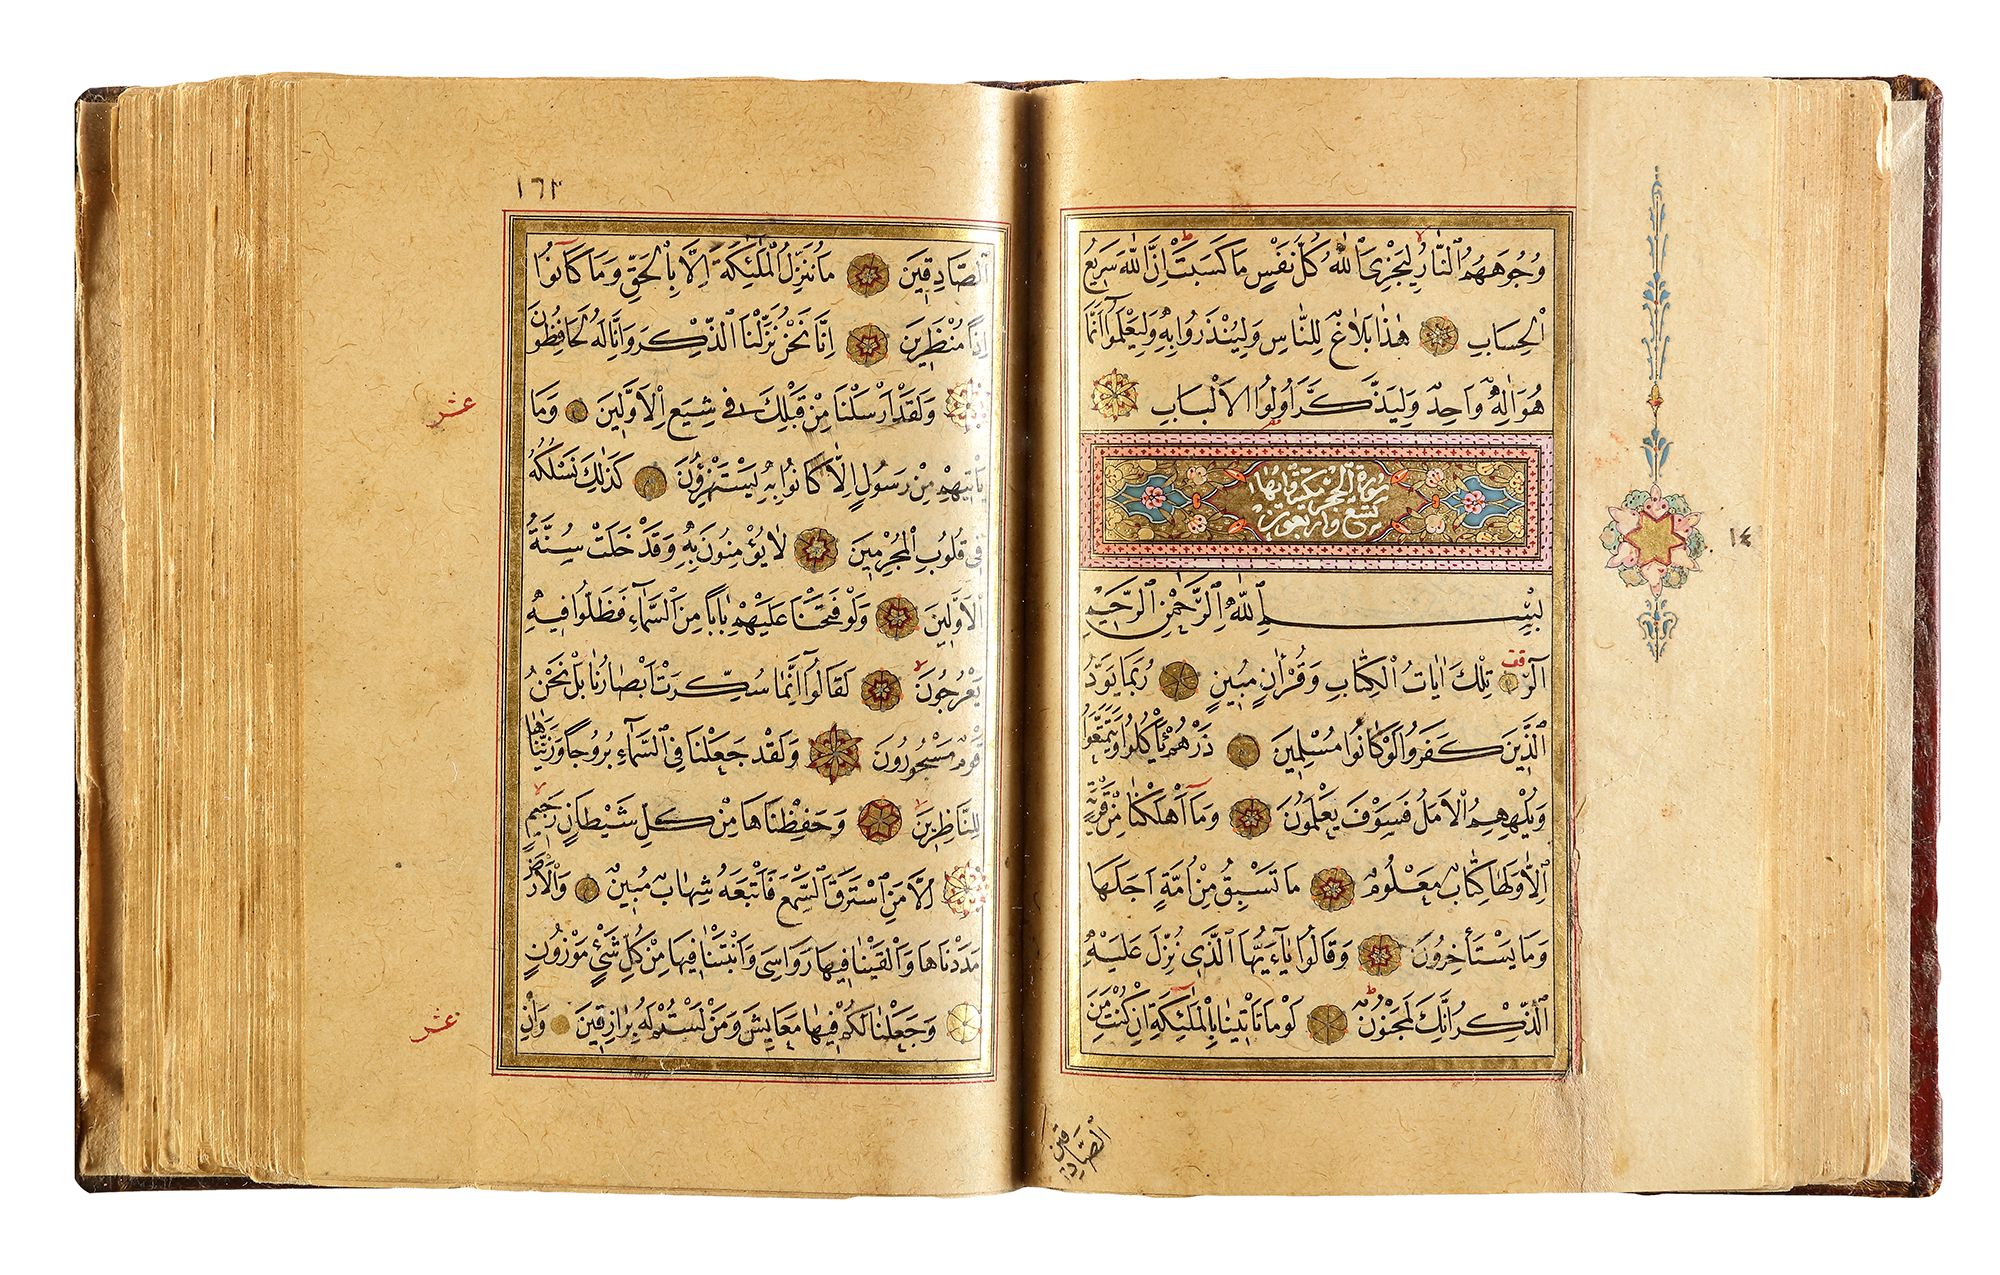 وُجُوهَهُمُ النَّارُ لِيَجْزِيَ اللّٰهُ كُلَّ نَفْسٍ مَا كَسَبَتْ اِنَّ اللّٰهَ سَرِيعُ
الْحِسَابِ هٰذَا بَلَاغٌ لِلنَّاسِ وَلِيُنْذَرُوا بِهٖ وَلِيَعْلَمُٓوا اَنَّمَا
هُوَ اِلٰهٌ وَاحِدٌ وَلِيَذَّكَّرَ اُولُوا الْاَلْبَابِ
سورة الحجر مكية وايها
تسع واربعون
بِسْمِ اللّٰهِ الرَّحْمٰنِ الرَّحِيمِ
الٓرٰ قف تِلْكَ اٰيَاتُ الْكِتَابِ وَقُرْاٰنٍ مُبِينٍ رُبَمَا يَوَدُّ
الَّذِينَ كَفَرُوا لَوْ كَانُوا مُسْلِمِينَ ذَرْهُمْ يَأْكُلُوا وَيَتَمَتَّعُوا
وَيُلْهِهِمُ الْاَمَلُ فَسَوْفَ يَعْلَمُونَ وَمَٓا اَهْلَكْنَا مِنْ قَرْيَةٍ
اِلَّا وَلَهَا كِتَابٌ مَعْلُومٌ مَا تَسْبِقُ مِنْ اُمَّةٍ اَجَلَهَا
وَمَا يَسْتَأْخِرُونَ وَقَالُوا يَٓا اَيُّهَا الَّذِي نُزِّلَ عَلَيْهِ
الذِّكْرُ اِنَّكَ لَمَجْنُونٌ لَوْ مَا تَأْتِينَا بِالْمَلٰٓئِكَةِ اِنْ كُنْتَ مِنَ
الصَّادِقِينَ
١٤
١٦٣
الصَّادِقِينَ مَا نُنَزِّلُ الْمَلٰٓئِكَةَ اِلَّا بِالْحَقِّ وَمَا كَانُٓوا
اِذًا مُنْظَرِينَ اِنَّا نَحْنُ نَزَّلْنَا الذِّكْرَ وَاِنَّا لَهُ لَحَافِظُونَ
وَلَقَدْ اَرْسَلْنَا مِنْ قَبْلِكَ فِي شِيَعِ الْاَوَّلِينَ وَمَا
يَأْتِيهِمْ مِنْ رَسُولٍ اِلَّا كَانُوا بِهٖ يَسْتَهْزِؤُنَ كَذٰلِكَ نَسْلُكُهُ
فِي قُلُوبِ الْمُجْرِمِينَ لَا يُؤْمِنُونَ بِهٖ وَقَدْ خَلَتْ سُنَّةُ
الْاَوَّلِينَ وَلَوْ فَتَحْنَا عَلَيْهِمْ بَابًا مِنَ السَّمَٓاءِ فَظَلُّوا فِيهِ
يَعْرُجُونَ لَقَالُٓوا اِنَّمَا سُكِّرَتْ اَبْصَارُنَا بَلْ نَحْنُ
قَوْمٌ مَسْحُورُونَ وَلَقَدْ جَعَلْنَا فِي السَّمَٓاءِ بُرُوجًا وَزَيَّنَّاهَا
لِلنَّاظِرِينَ وَحَفِظْنَاهَا مِنْ كُلِّ شَيْطَانٍ رَجِيمٍ
اِلَّا مَنِ اسْتَرَقَ السَّمْعَ فَاَتْبَعَهُ شِهَابٌ مُبِينٌ وَالْاَرْضَ
مَدَدْنَاهَا وَاَلْقَيْنَا فِيهَا رَوَاسِيَ وَاَنْبَتْنَا فِيهَا مِنْ كُلِّ شَيْءٍ مَوْزُونٍ
وَجَعَلْنَا لَكُمْ فِيهَا مَعَايِشَ وَمَنْ لَسْتُمْ لَهُ بِرَازِقِينَ وَاِنْ
عشر
عشر